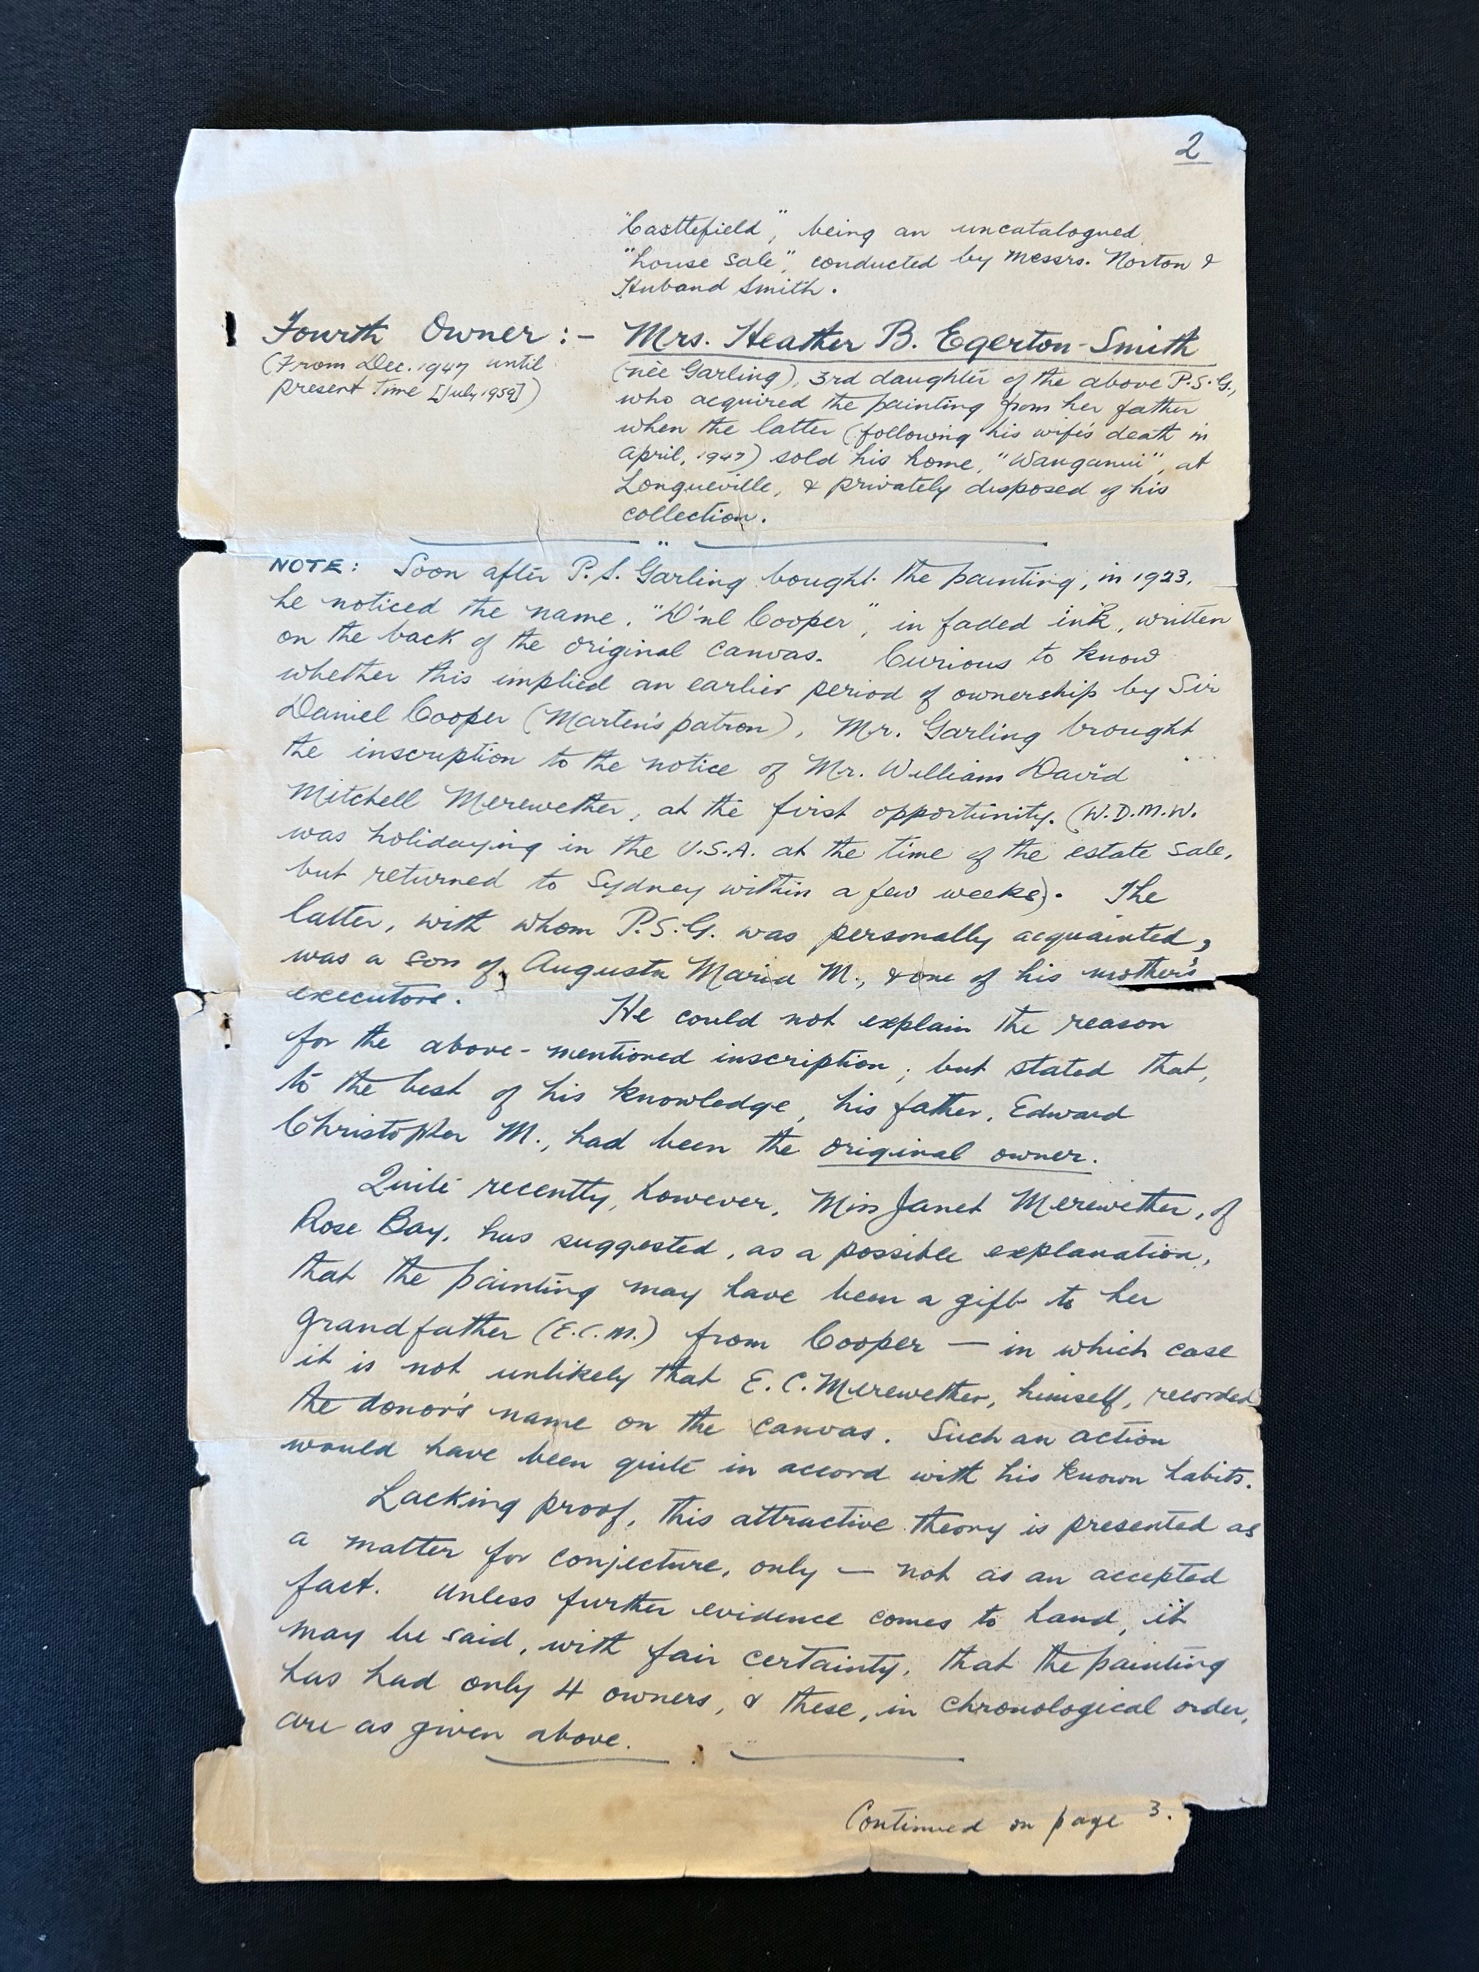 2
"Castlefield", being an uncatalogued
"house sale", conducted by Messrs. Norton &
Huband Smith.
Fourth Owner :- Mrs. Heather B. Egerton-Smith
(From Dec. 1947 until
present time [July 1959])
(née Garling), 3rd daughter of the above P.S.G.,
who acquired the painting from her father
when the latter (following his wife's death in
April, 1947) sold his home, "Wanganui", at
Longueville, & privately disposed of his
collection.
NOTE: Soon after P.S. Garling bought the painting, in 1923,
he noticed the name, "D'nl Cooper", in faded ink, written
on the back of the original canvas. Curious to know
whether this implied an earlier period of ownership by Sir
Daniel Cooper (Marten's patron), Mr. Garling brought
the inscription to the notice of Mr. William David
Mitchell Merewether, at the first opportunity. (W.D.M.W.
was holidaying in the U.S.A. at the time of the estate sale,
but returned to Sydney within a few weeks). The
latter, with whom P.S.G. was personally acquainted,
was a son of Augusta Maria M., & one of his mother's
executors. He could not explain the reason
for the above-mentioned inscription, but stated that,
to the best of his knowledge, his father, Edward
Christopher M., had been the original owner.
Quite recently, however, Miss Janet Merewether, of
Rose Bay, has suggested, as a possible explanation,
that the painting may have been a gift to her
grandfather (E.C.M.) from Cooper — in which case
it is not unlikely that E.C. Merewether, himself, recorded
the donor's name on the canvas. Such an action
would have been quite in accord with his known habits.
Lacking proof, this attractive theory is presented as
a matter for conjecture, only — not as an accepted
fact. Unless further evidence comes to hand, it
may be said, with fair certainty, that the painting
has had only 4 owners, & these, in chronological order,
are as given above.
Continued on page 3.